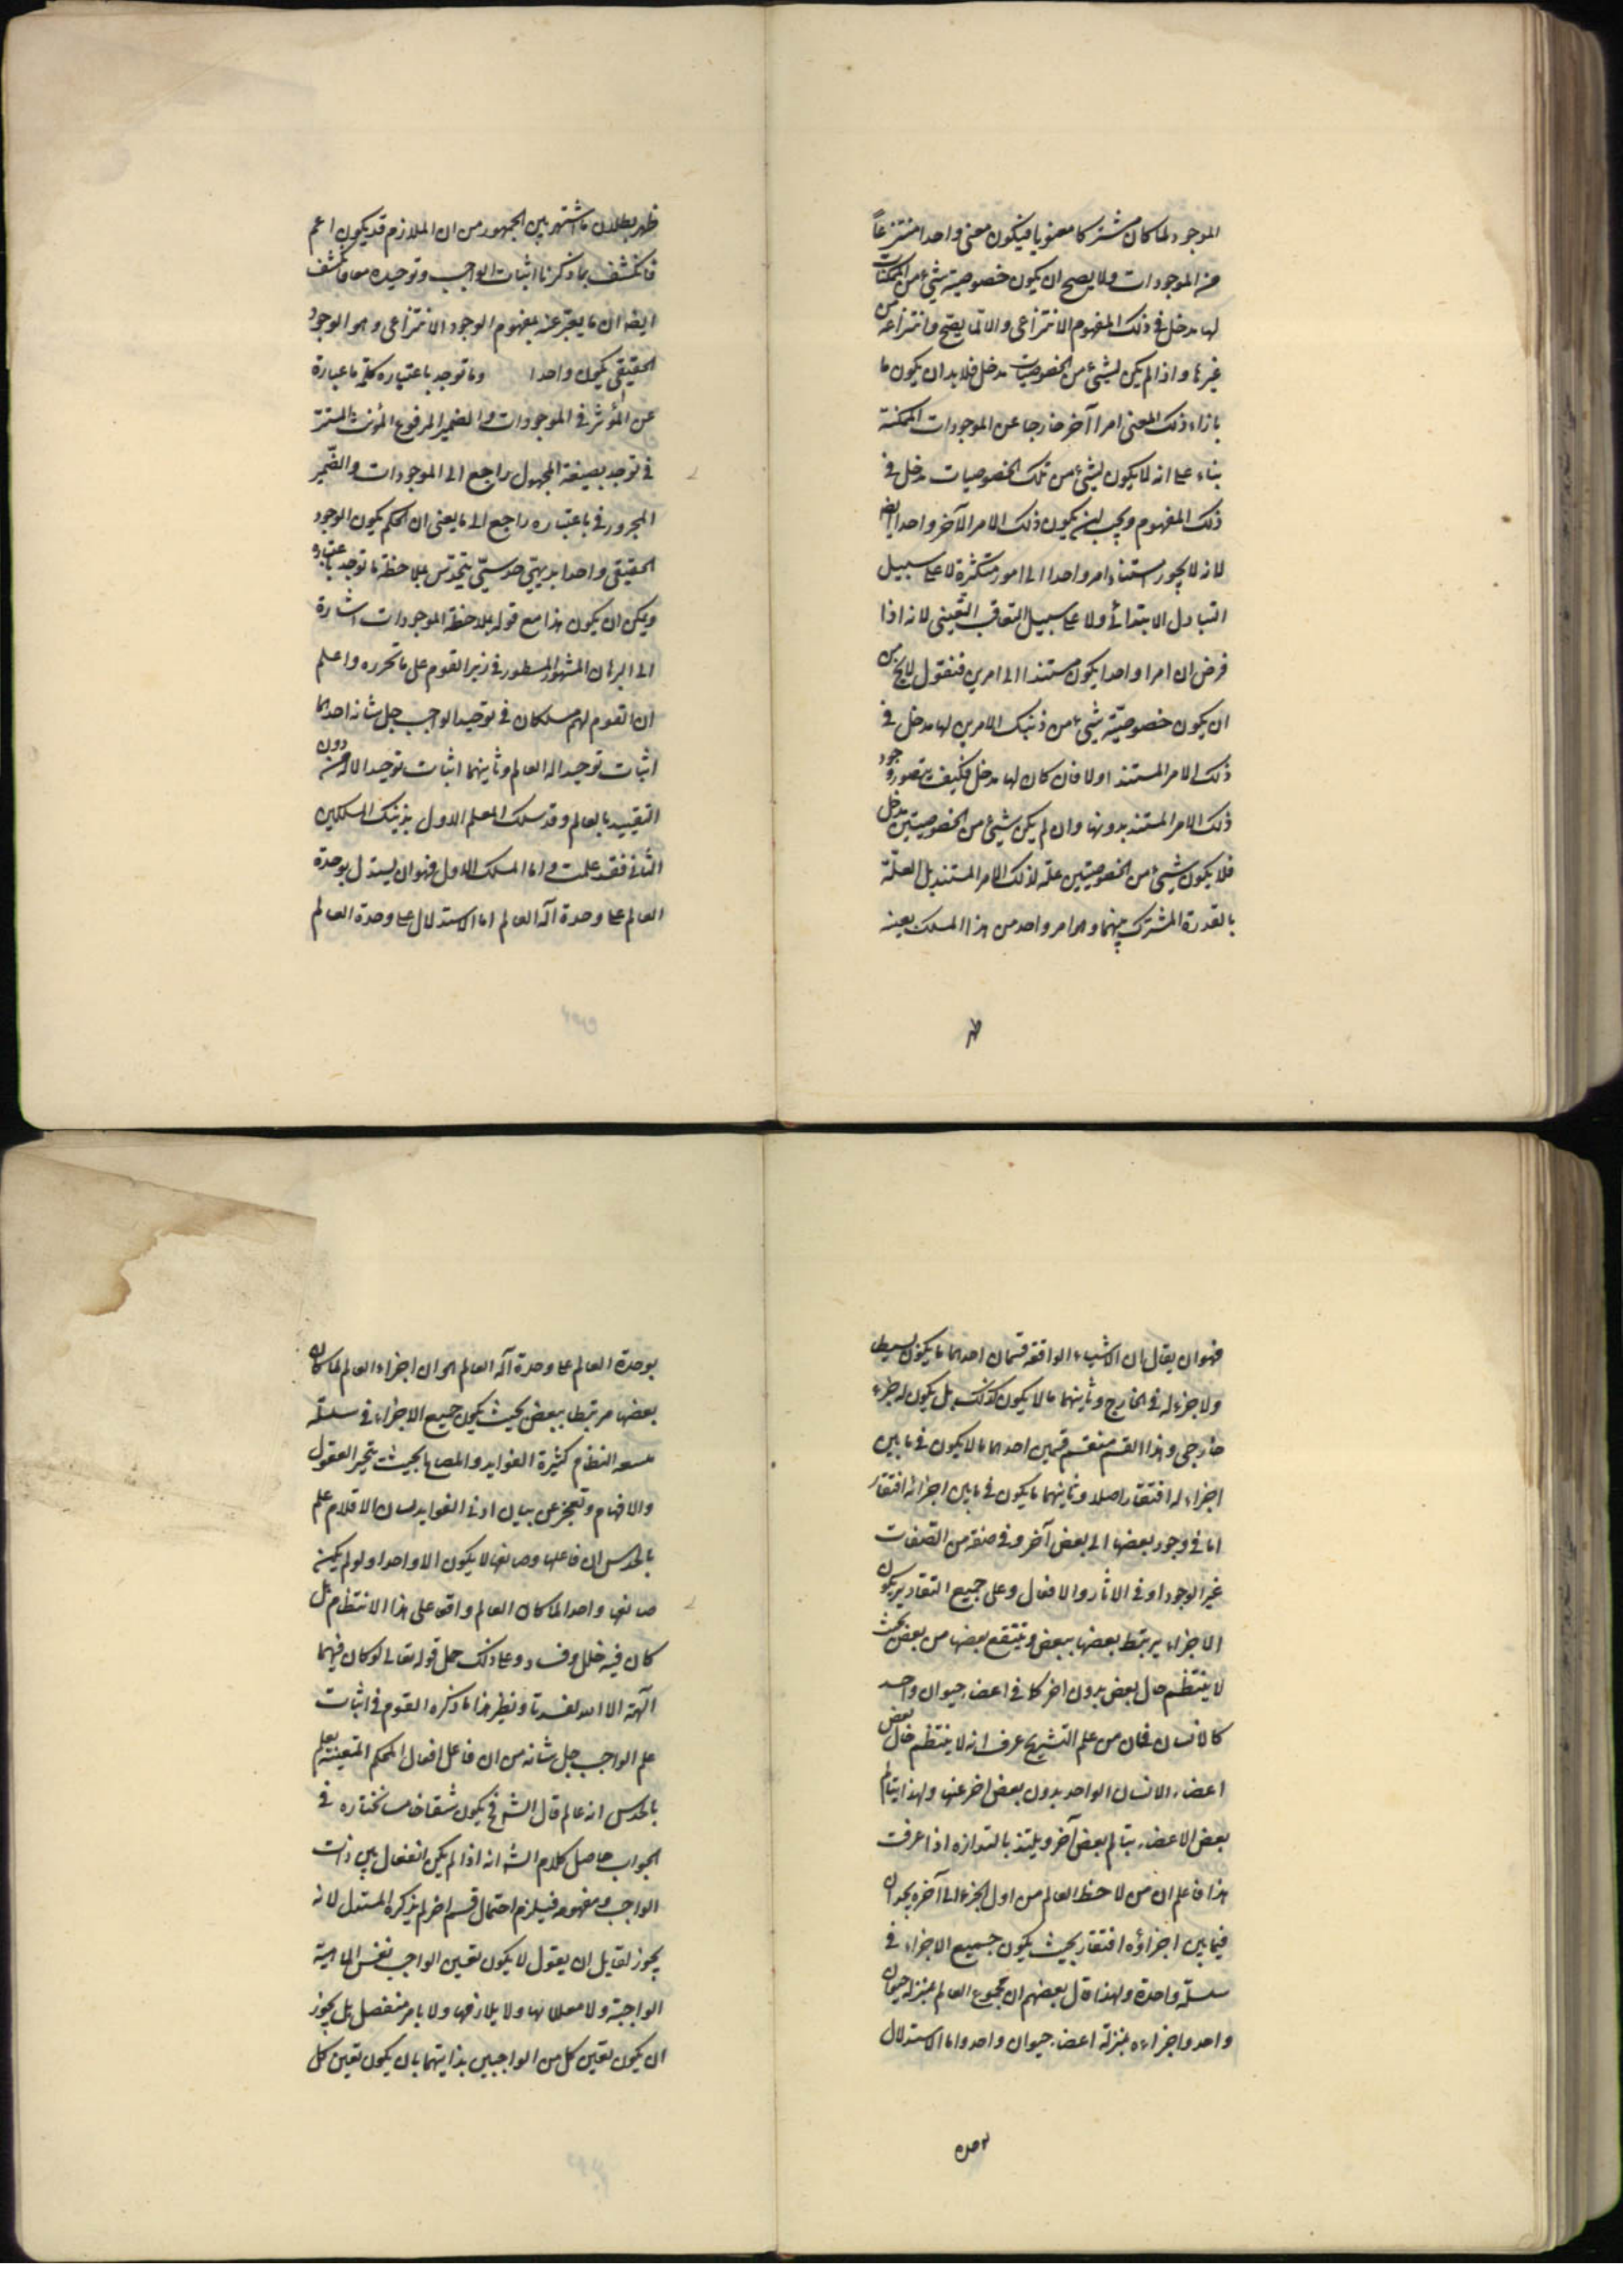 الموجود لما كان مشتركا معنويا فيكون معنى واحدا منتزعاً
من الموجودات ولا يصح ان يكون خصوصية شيء من الممكنات
لها مدخل في ذلك المفهوم الانتزاعي والا لما يصح انتزاعه من
غيرها واذا لم يكن لشيء من الخصوصيات مدخل فلا بد ان يكون ما
بازاء ذلك المعنى امرا آخر خارجا عن الموجودات الممكنة
بناء على انه لا يكون لشيء من تلك الخصوصيات مدخل في
ذلك المفهوم ويجب ان يكون ذلك الامر الآخر واحدا ايضا
لانه لا يجوز استناد امر واحد الى امور متكثرة لا على سبيل
التبادل الابتدائي ولا على سبيل التعاقب التعيني لانه اذا
فرض ان امرا واحدا يكون مستندا الى امرين فنقول لا يخ من
ان يكون خصوصيّة شيء من ذينك الامرين لها مدخل في
ذلك الامر المستند اولا فان كان لها مدخل فكيف يتصور وجود
ذلك الامر المستند بدونها وان لم يكن شيء من الخصوصيتين مدخل
فلا يكون شيء من الخصوصيتين علة لذلك الامر المستند بل العلّة
بالقدرة المشترك بينهما وهو امر واحد من هذا المسلك بعينه
ظهر
ظهر بطلان ما اشتهر بين الجمهور من ان الملازم قد يكون اعم
فانكشف بما ذكرنا اثبات الواجب وتوحيده معا وانكشف
ايضا ان ما يعبّر عنه بمفهوم الوجود الانتزاعي وهو الوجود
الحقيقي يكون واحدا وما توجد باعتباره كلمة ما عبارة
عن المؤثر في الموجودات والضمير المرفوع المؤنث المستتر
في توجد بصيغة المجهول راجع الى الموجودات والضّمير
المجرور في باعتباره راجع الى ما يعني ان الحكم يكون الوجود
الحقيقي واحدا بديهيّ حدسيّ يتحدّس بملاحظة ما توجد باعتباره
ويمكن ان يكون هذا مع قوله بملاحظة الموجودات اشارة
الى البرهان المشهور المسطور في زبر القوم على ما تحرره واعلم
ان القوم لهم مسلكان في توحيد الواجب جل شانه احدهما
اثبات توحيد اله العالم وثانيهما اثبات توحيد الاله من دون
التقييد بالعالم وقد سلك المعلم الاول بذينك المسلكين
الثاني فقد علمت واما المسلك الاول فهو ان يستدل بوحدة
العالم على وحدة آله العالم اما الاستدلال على وحدة العالم
فهو ان يقال ان الاشياء الواقعة قسمان احدهما ما يكون بسيطا
ولا جزء له في الخارج وثانيهما ما لا يكون كذلك بل يكون له جزء
خارجي وهذا القسم منقسم قسمين احدهما ما لا يكون في ما بين
اجزاء له افتقار اصلا وثانيهما ما يكون في ما بين اجزائه افتقار
اما في وجود بعضها الى بعض آخر وفي صفة من الصّفات
غير الوجود او في الآثار والافعال وعلى جميع التقادير يكون
الاجزاء يرتبط بعضها ببعض وينتفع بعضها من بعض بحيث
لا ينتظم حال بعض بدون اخر كما في اعضاء حيوان واحد
كالانسان فان من علم التشريح عرف انه لا ينتظم حال بعض
اعضاء الانسان الواحد بدون بعض اخر عنها ولهذا يتالم
بعض الاعضاء بتالم بعض آخر ويلتذ بالتذاذه اذا عرفت
هذا فاعلم ان من لاحظ العالم من اول الجزء الى آخره يجد ان
فيما بين اجزاؤه افتقار بحيث يكون جميع الاجزاء في
سلسلة واحدة ولهذا قال بعضهم ان مجموع العالم بمنزلة حيوان
واحد واجزاءه بمنزلة اعضاء حيوان واحد واما الاستدلال
بوحدة
بوحدة العالم على وحدة آله العالم هو ان اجزاء العالم لما كان
بعضها مرتبطا ببعض بحيث يكون جميع الاجزاء في سلسلة
النظام كثيرة الفوايد والمصالح بحيث يتحير العقول
والافهام وتعجز عن بيان ادنى الفوايد لسان الاقلام علم
بالحدس ان فاعلها وصانعها لا يكون الا واحدا ولو لم يكن
صانعها واحدا لما كان العالم واقعا على هذا الانتظام بل
كان فيه خلل وفساد وعلى ذلك حمل قوله تعالى لو كان فيهما
آلهة الا الله لفسدتا ونظير هذا ما ذكره القوم في اثبات
علم الواجب جل شانه من ان فاعل افعال المحكم المتقنة يعلم
بالحدس انه عالم قال الش فح يكون شقا خامسا نختاره في
الجواب حاصل كلام الش انه اذا لم يكن انفعال بين ذات
الواجب ومفهومه فيلزم احتمال قسم اخر لم يذكره المستدل لانه
يجوز لقايل ان يقول لا يكون تعين الواجب نفس الماهية
الواجبة ولا معللا بها ولا بلازمها ولا بامر منفصل بل يجوز
ان يكون تعين كل من الواجبين بذاتيهما بان يكون تعين كل